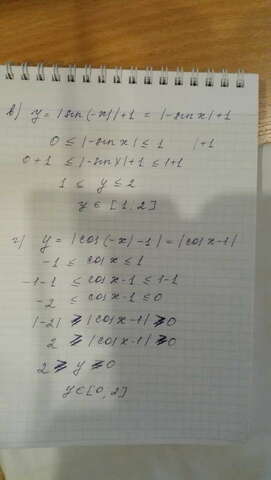 в) y = |sin(-x)|+1 = |-sin x|+1
0 ≤ |-sin x| ≤ 1 |+1
0+1 ≤ |-sin x|+1 ≤ 1+1
1 ≤ y ≤ 2
y ∈ [1,2]
г) y = |cos(-x)-1| = |cos x-1|
-1 ≤ cos x ≤ 1
-1-1 ≤ cos x-1 ≤ 1-1
-2 ≤ cos x-1 ≤ 0
|-2| ≥ |cos x-1| ≥ 0
2 ≥ |cos x-1| ≥ 0
2 ≥ y ≥ 0
y ∈ [0,2]